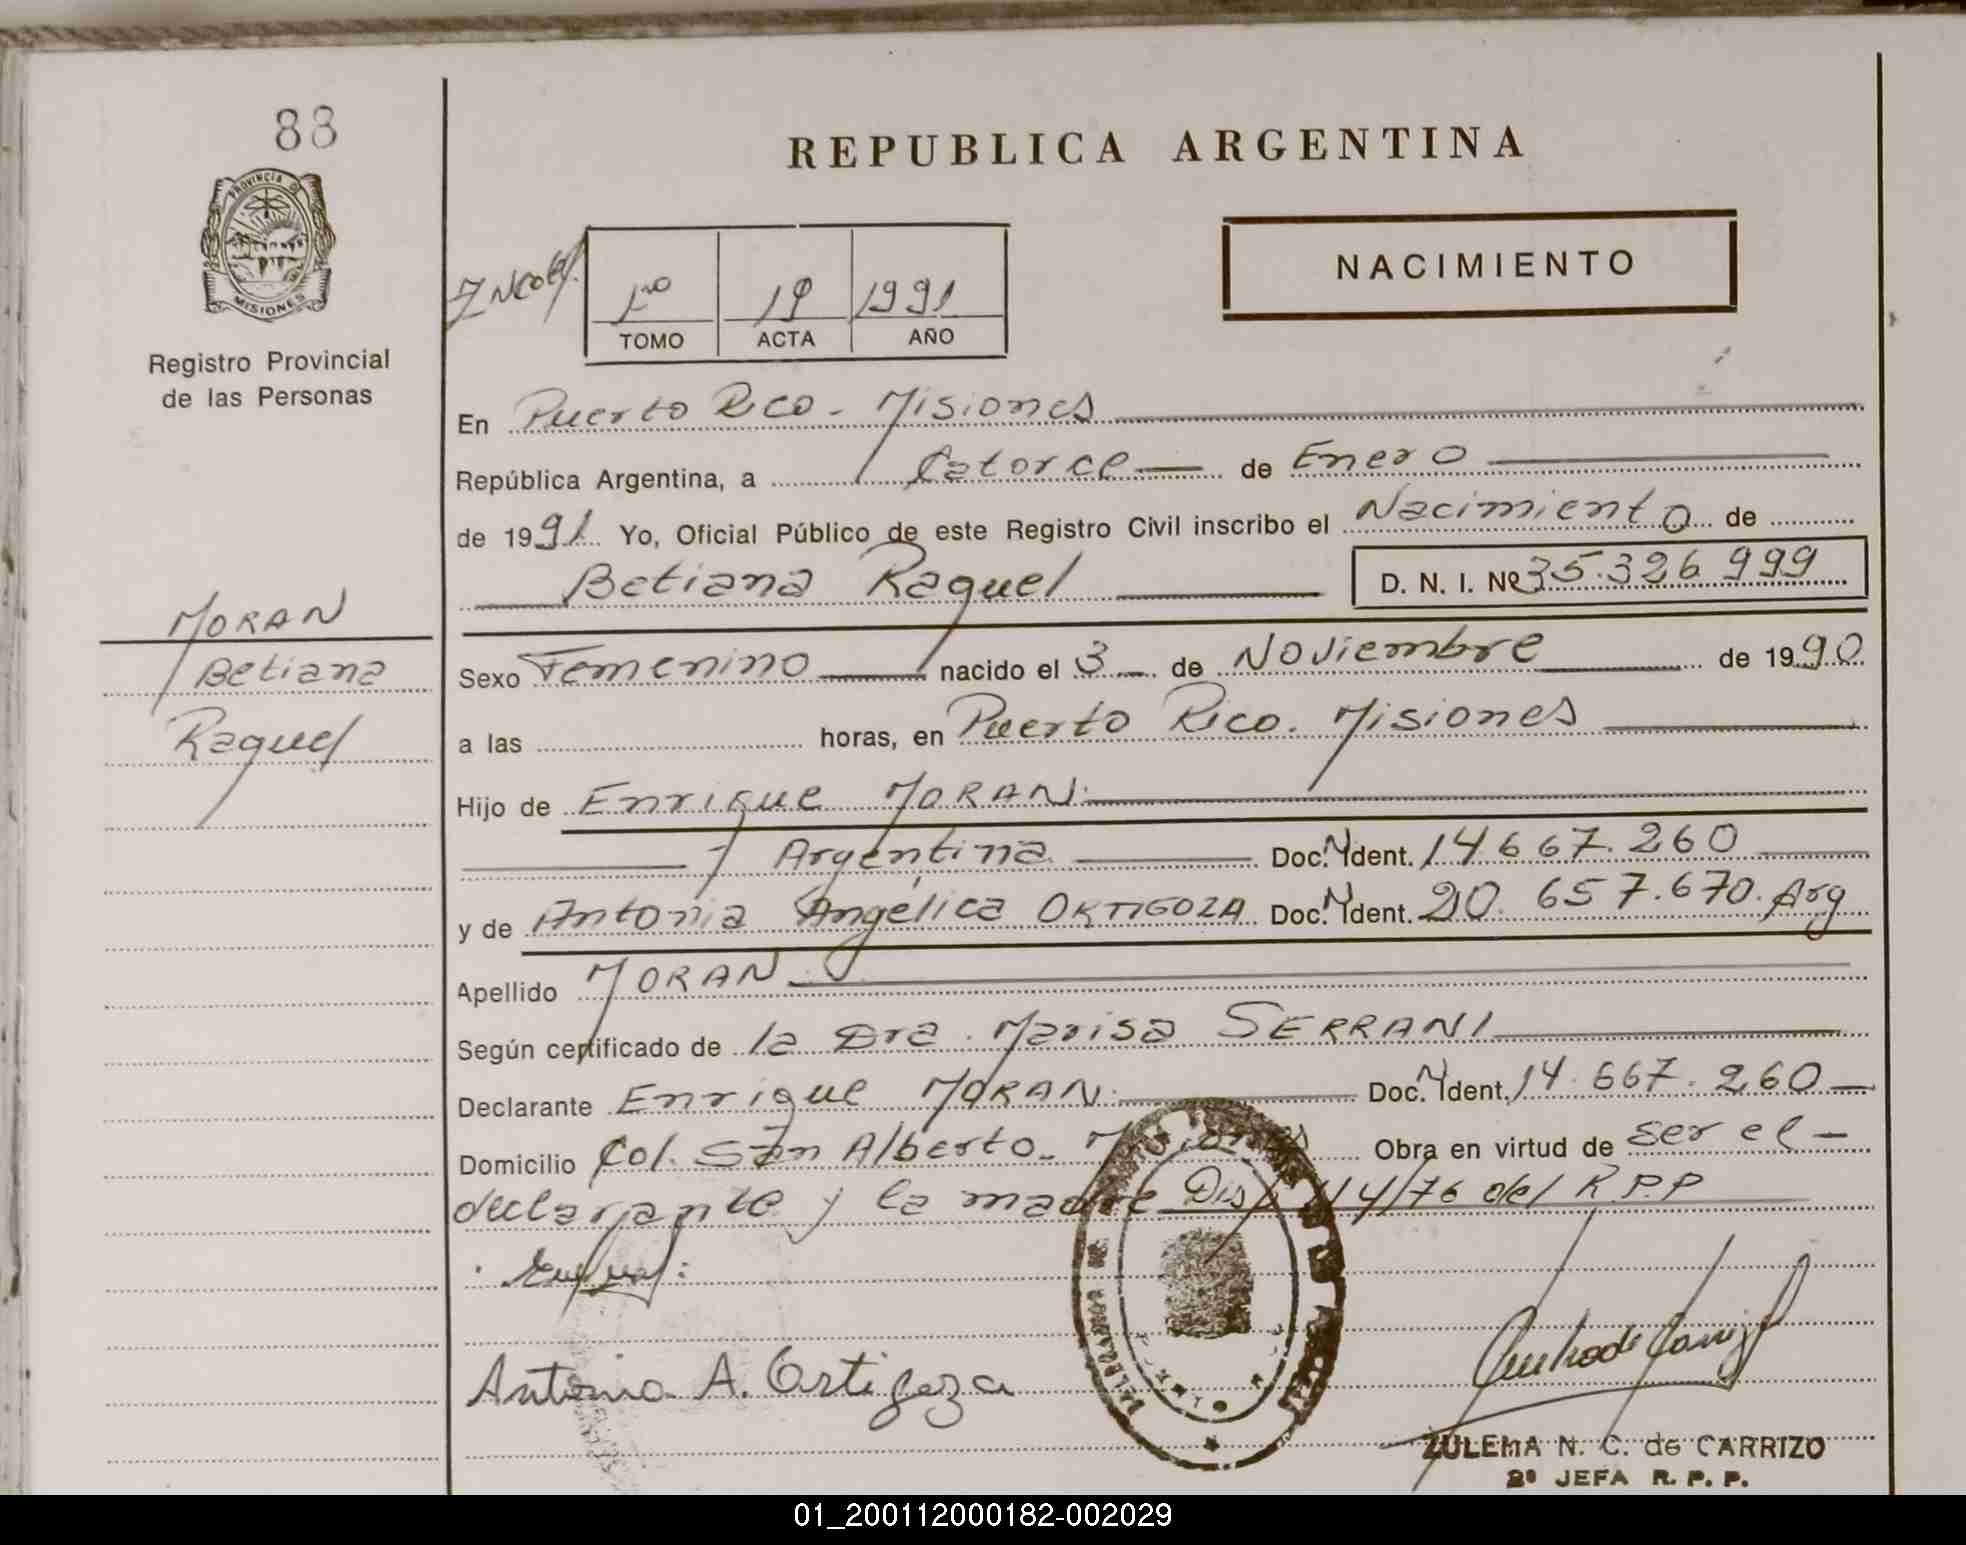 88
PROVINCIA DE
MISIONES
Registro Provincial
de las Personas
MORAN
Betiana
Raquel
REPUBLICA ARGENTINA
NACIMIENTO
1ro 19 1991
TOMO ACTA AÑO
En Puerto Rico - Misiones
República Argentina, a Catorce de Enero
de 1991 Yo, Oficial Público de este Registro Civil inscribo el Nacimiento de
Betiana Raquel D. N. I. Nº 35.326 999
Sexo Femenino nacido el 3 de Noviembre de 1990
a las horas, en Puerto Rico. Misiones
Hijo de Enrique MORAN
Argentina Doc. N Ident. 14 667.260
y de Antonia Angélica ORTIGOZA Doc. N Ident. 20. 657.670. Arg
Apellido MORAN
Según certificado de la Dra. Marisa SERRANI
Declarante Enrique MORAN Doc. N Ident. 14.667.260
Domicilio Col. San Alberto - Misiones Obra en virtud de ser el -
declarante y la madre Disp 114/76 del R.P.P
Antonia A. Ortigoza
ZULEMA N. C. de CARRIZO
2º JEFA R. P. P.
01_200112000182-002029